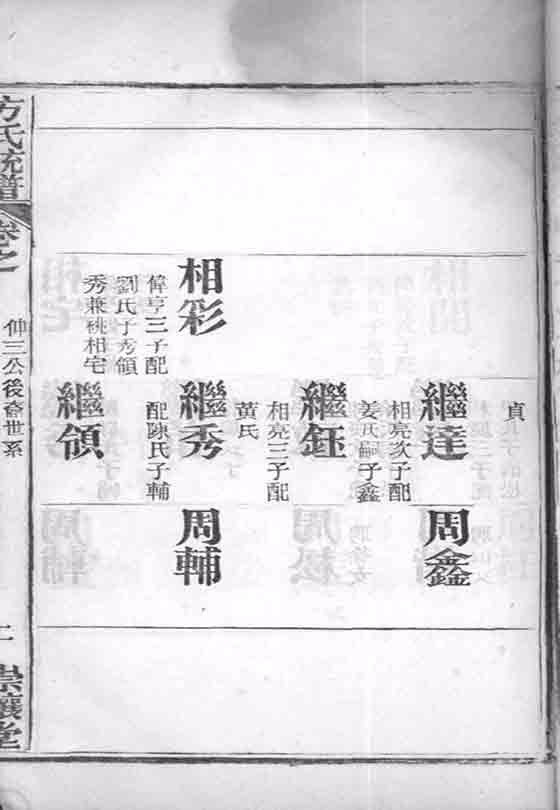 貞
繼達
相亮次子配
姜氏嗣子鑫
周鑫
繼鈺
相亮三子配
黃氏
相彩
偉享三子配
劉氏子秀領
秀兼祧相宅
繼秀
配陳氏子輔
周輔
繼領
方氏統譜
卷之
仲三公後
世系
二
崇讓堂